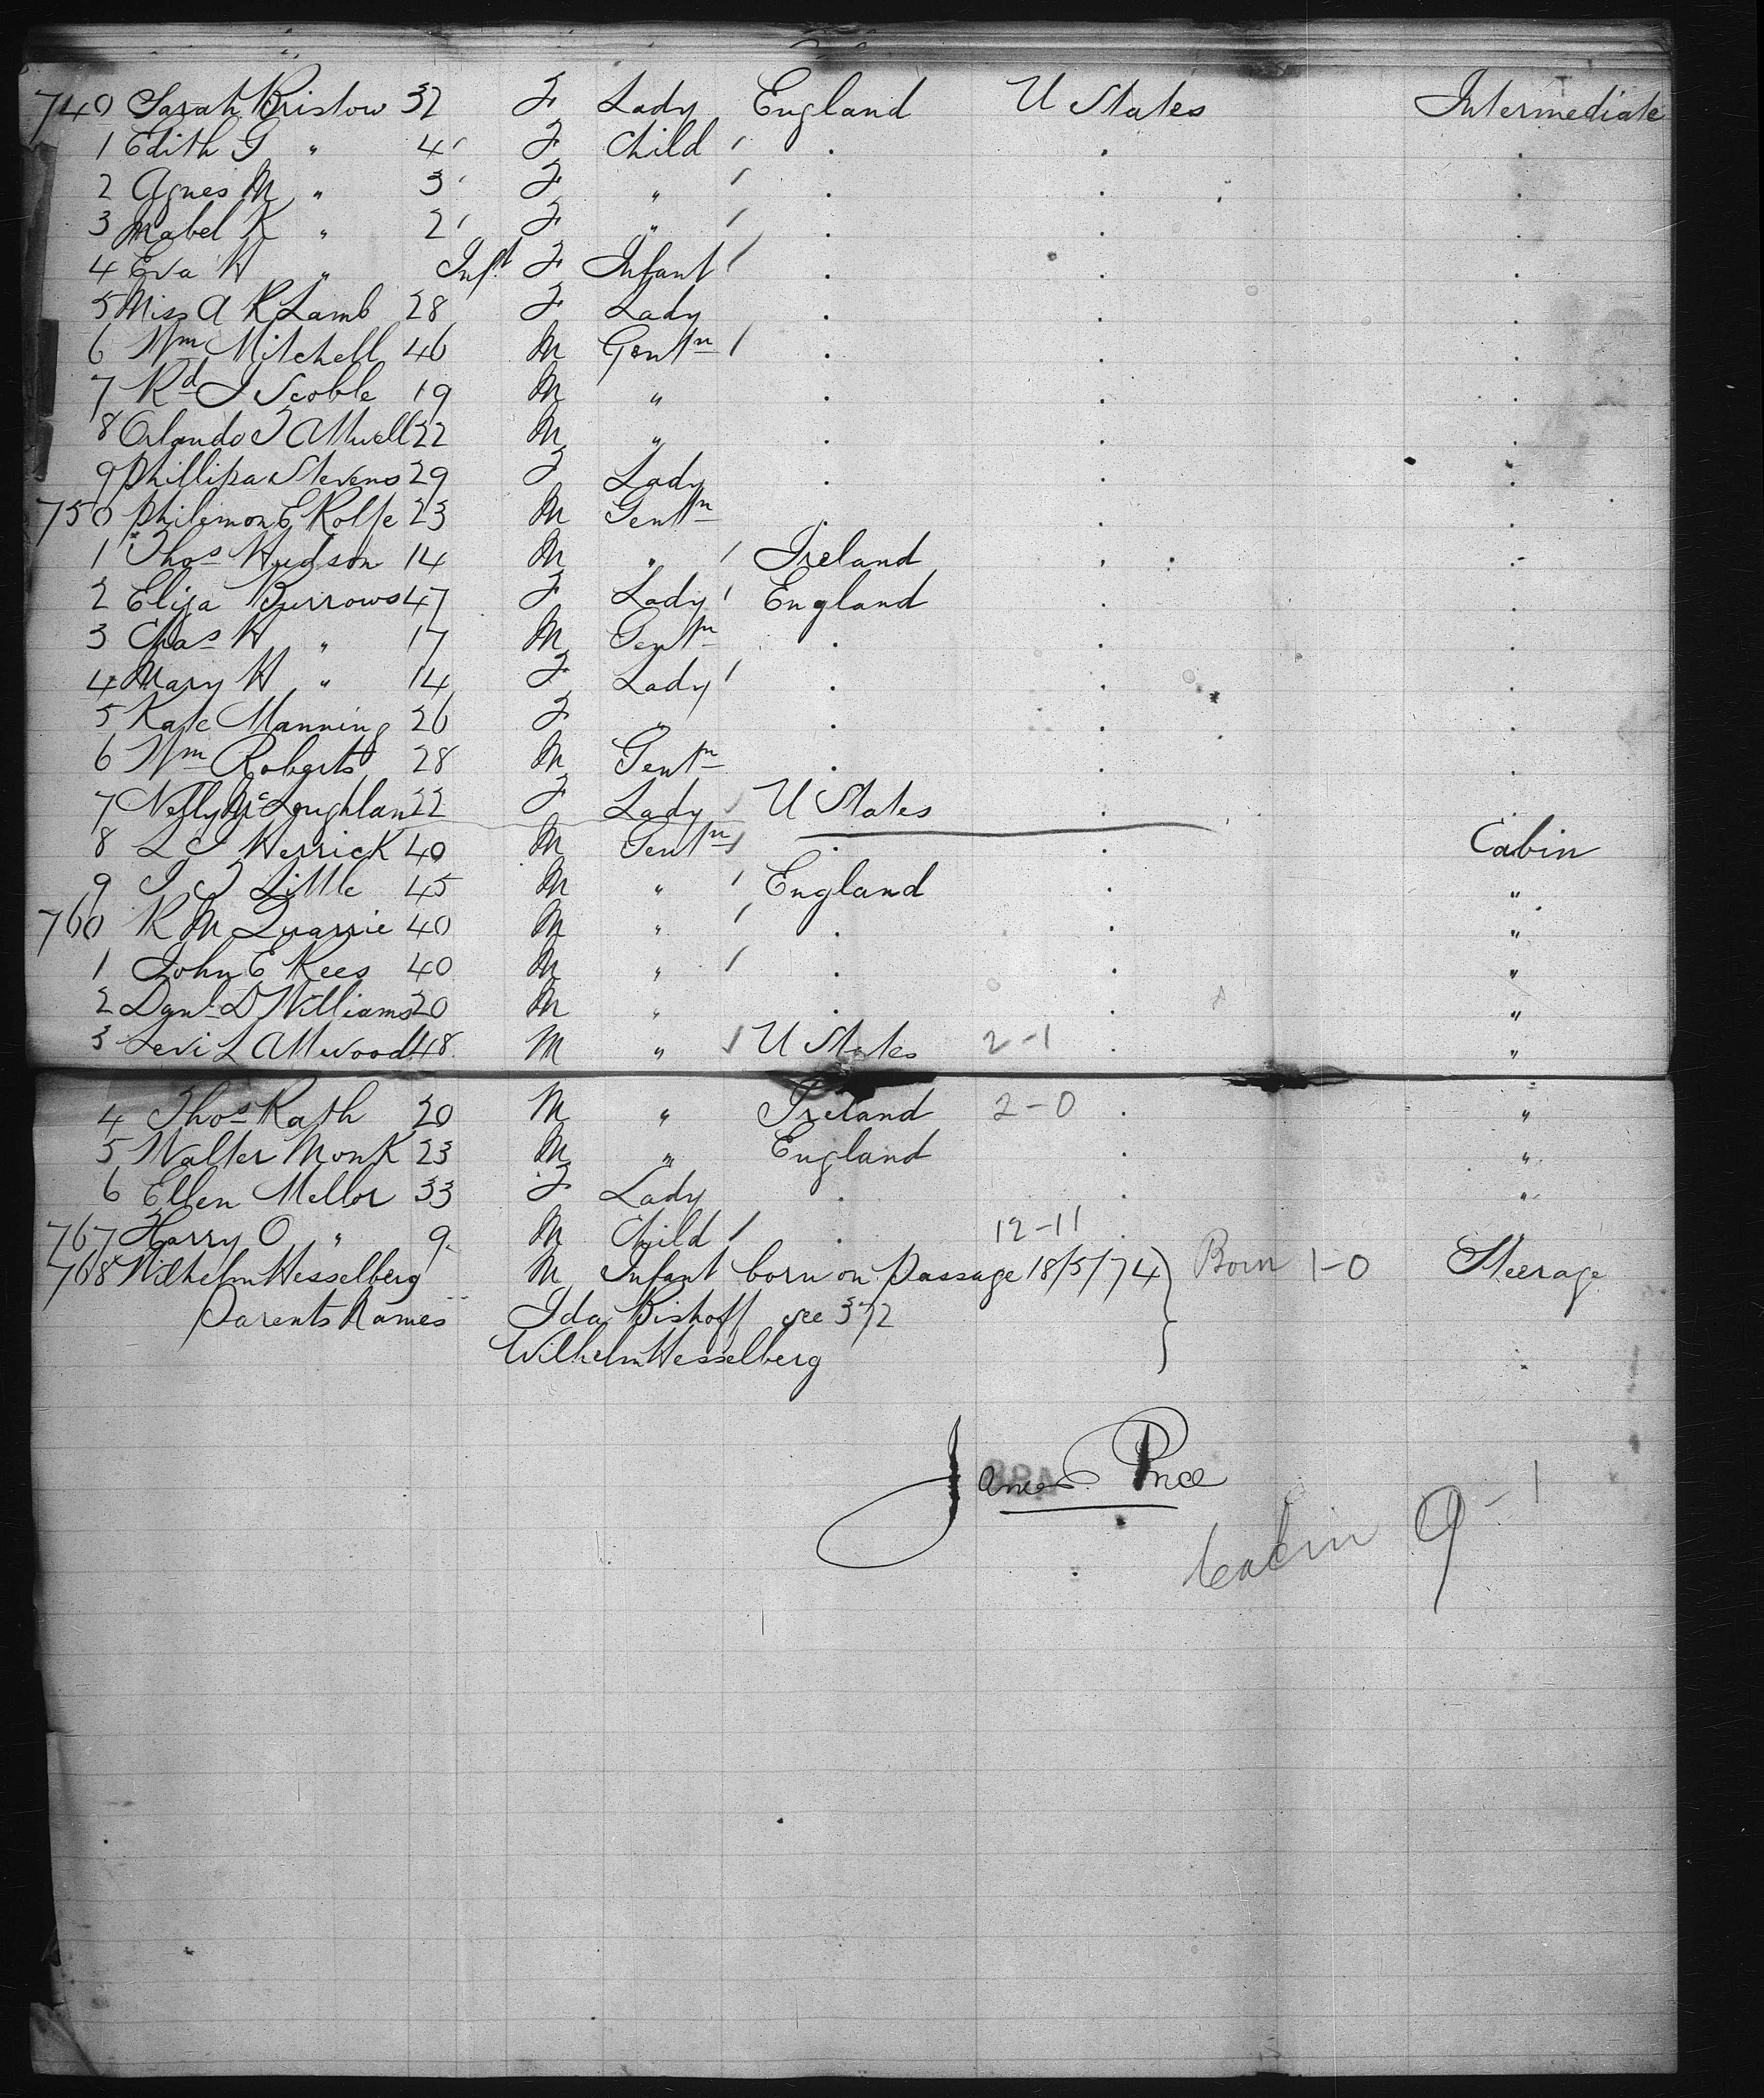 740 Sarah Bristow 32 F Lady England U States Intermediate
1 Edith G " 4 F Child / . . .
2 Agnes M " 3 F " / . . .
3 Mabel K " 2 F " / . . .
4 Eva H " Inft F Infant / . . .
5 Miss A R Lamb 28 F Lady . . .
6 Wm Mitchell 46 M Gentn / . . .
7 Rd J Scoble 19 M " . . .
8 Orlando T Attwell 22 M " . . .
9 Phillipa Stevens 29 F Lady . . .
750 Philemon E Rolfe 23 M Gentn . . .
1 Thos Hudson 14 M " / Ireland . .
2 Eliza Burrows 47 F Lady / England . .
3 Chas H " 17 M Gentn . . .
4 Mary H " 14 F Lady / . . .
5 Kate Manning 26 F " . . .
6 Wm Roberts 28 M Gentn . . .
7 Nelly McLoughlan 22 F Lady / U States .
8 L J Herrick 40 M Gentn / . . Cabin
9 J T Little 45 M " / England . "
760 R M Quarrie 40 M " / . . "
1 John E Rees 40 M " / . . "
2 Danl D Williams 20 M " . . "
3 Levi L Attwood 48 M " / U States 2-1 . "
4 Thos Rath 20 M " Ireland 2-0 . "
5 Walter Monk 23 M " England . "
6 Ellen Mellor 33 F Lady . . "
767 Harry O " 9 M Child / . 12-11 .
768 Wilhelm Hesselberg M Infant born on Passage 18/5/74 } Born 1-0 Steerage
Parents Names Ida Bishoff see 372
Wilhelm Hesselberg
James Price
Cabin 9-1